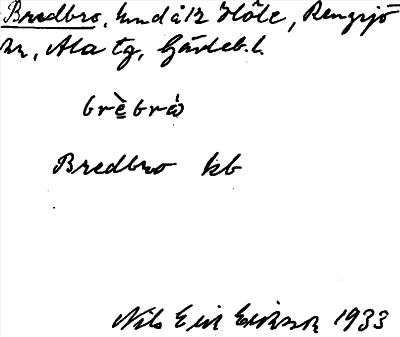 Bredbro, Sund å Höle, Rengsjö
sn, Ala tg, Gävleb. l.
brèbrò
Bredbro kb
Nils Eric Ericson 1933